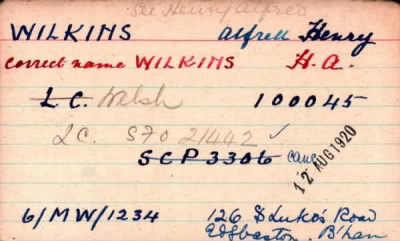 See Henry Alfred
WILKINS Alfred Henry
Correct name WILKINS H.A.
L.C. Welsh 100045
LC. S70 21442 ✓
SCP 3306 canc
12 AUG 1920
6/MW/1234 126 St Luke's Road
Edgbaston. B'ham